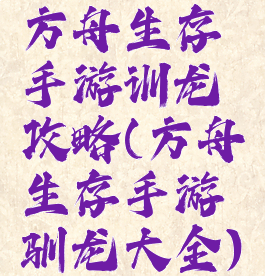 方舟生存
手游训龙
攻略(方舟
生存手游
驯龙大全)